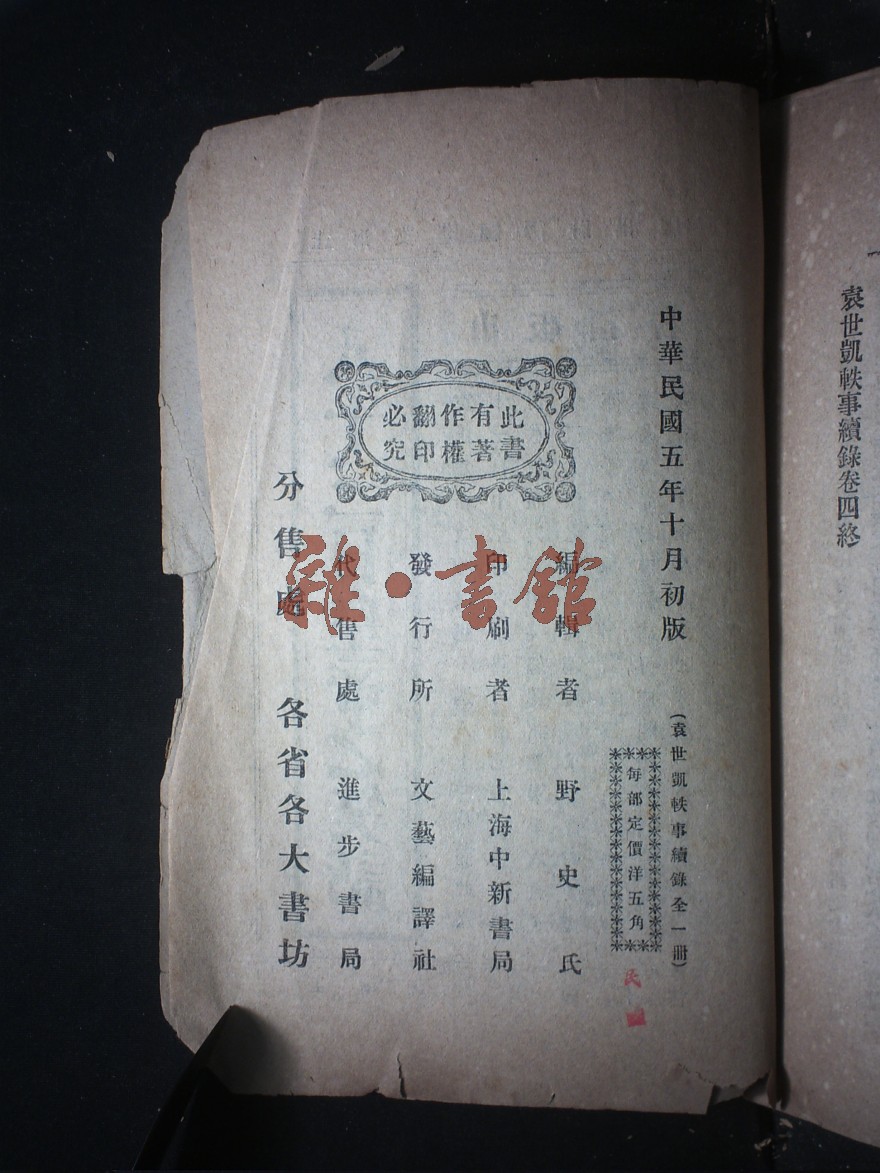 袁世凱軼事續錄卷四終
中華民國五年十月初版
(袁世凱軼事續錄全一冊)
每部定價洋五角
此書
有著
作權
翻印
必究
編輯者 野史氏
印刷者 上海中新書局
發行所 文藝編譯社
代售處 進步書局
分售處 各省各大書坊
雜·書館